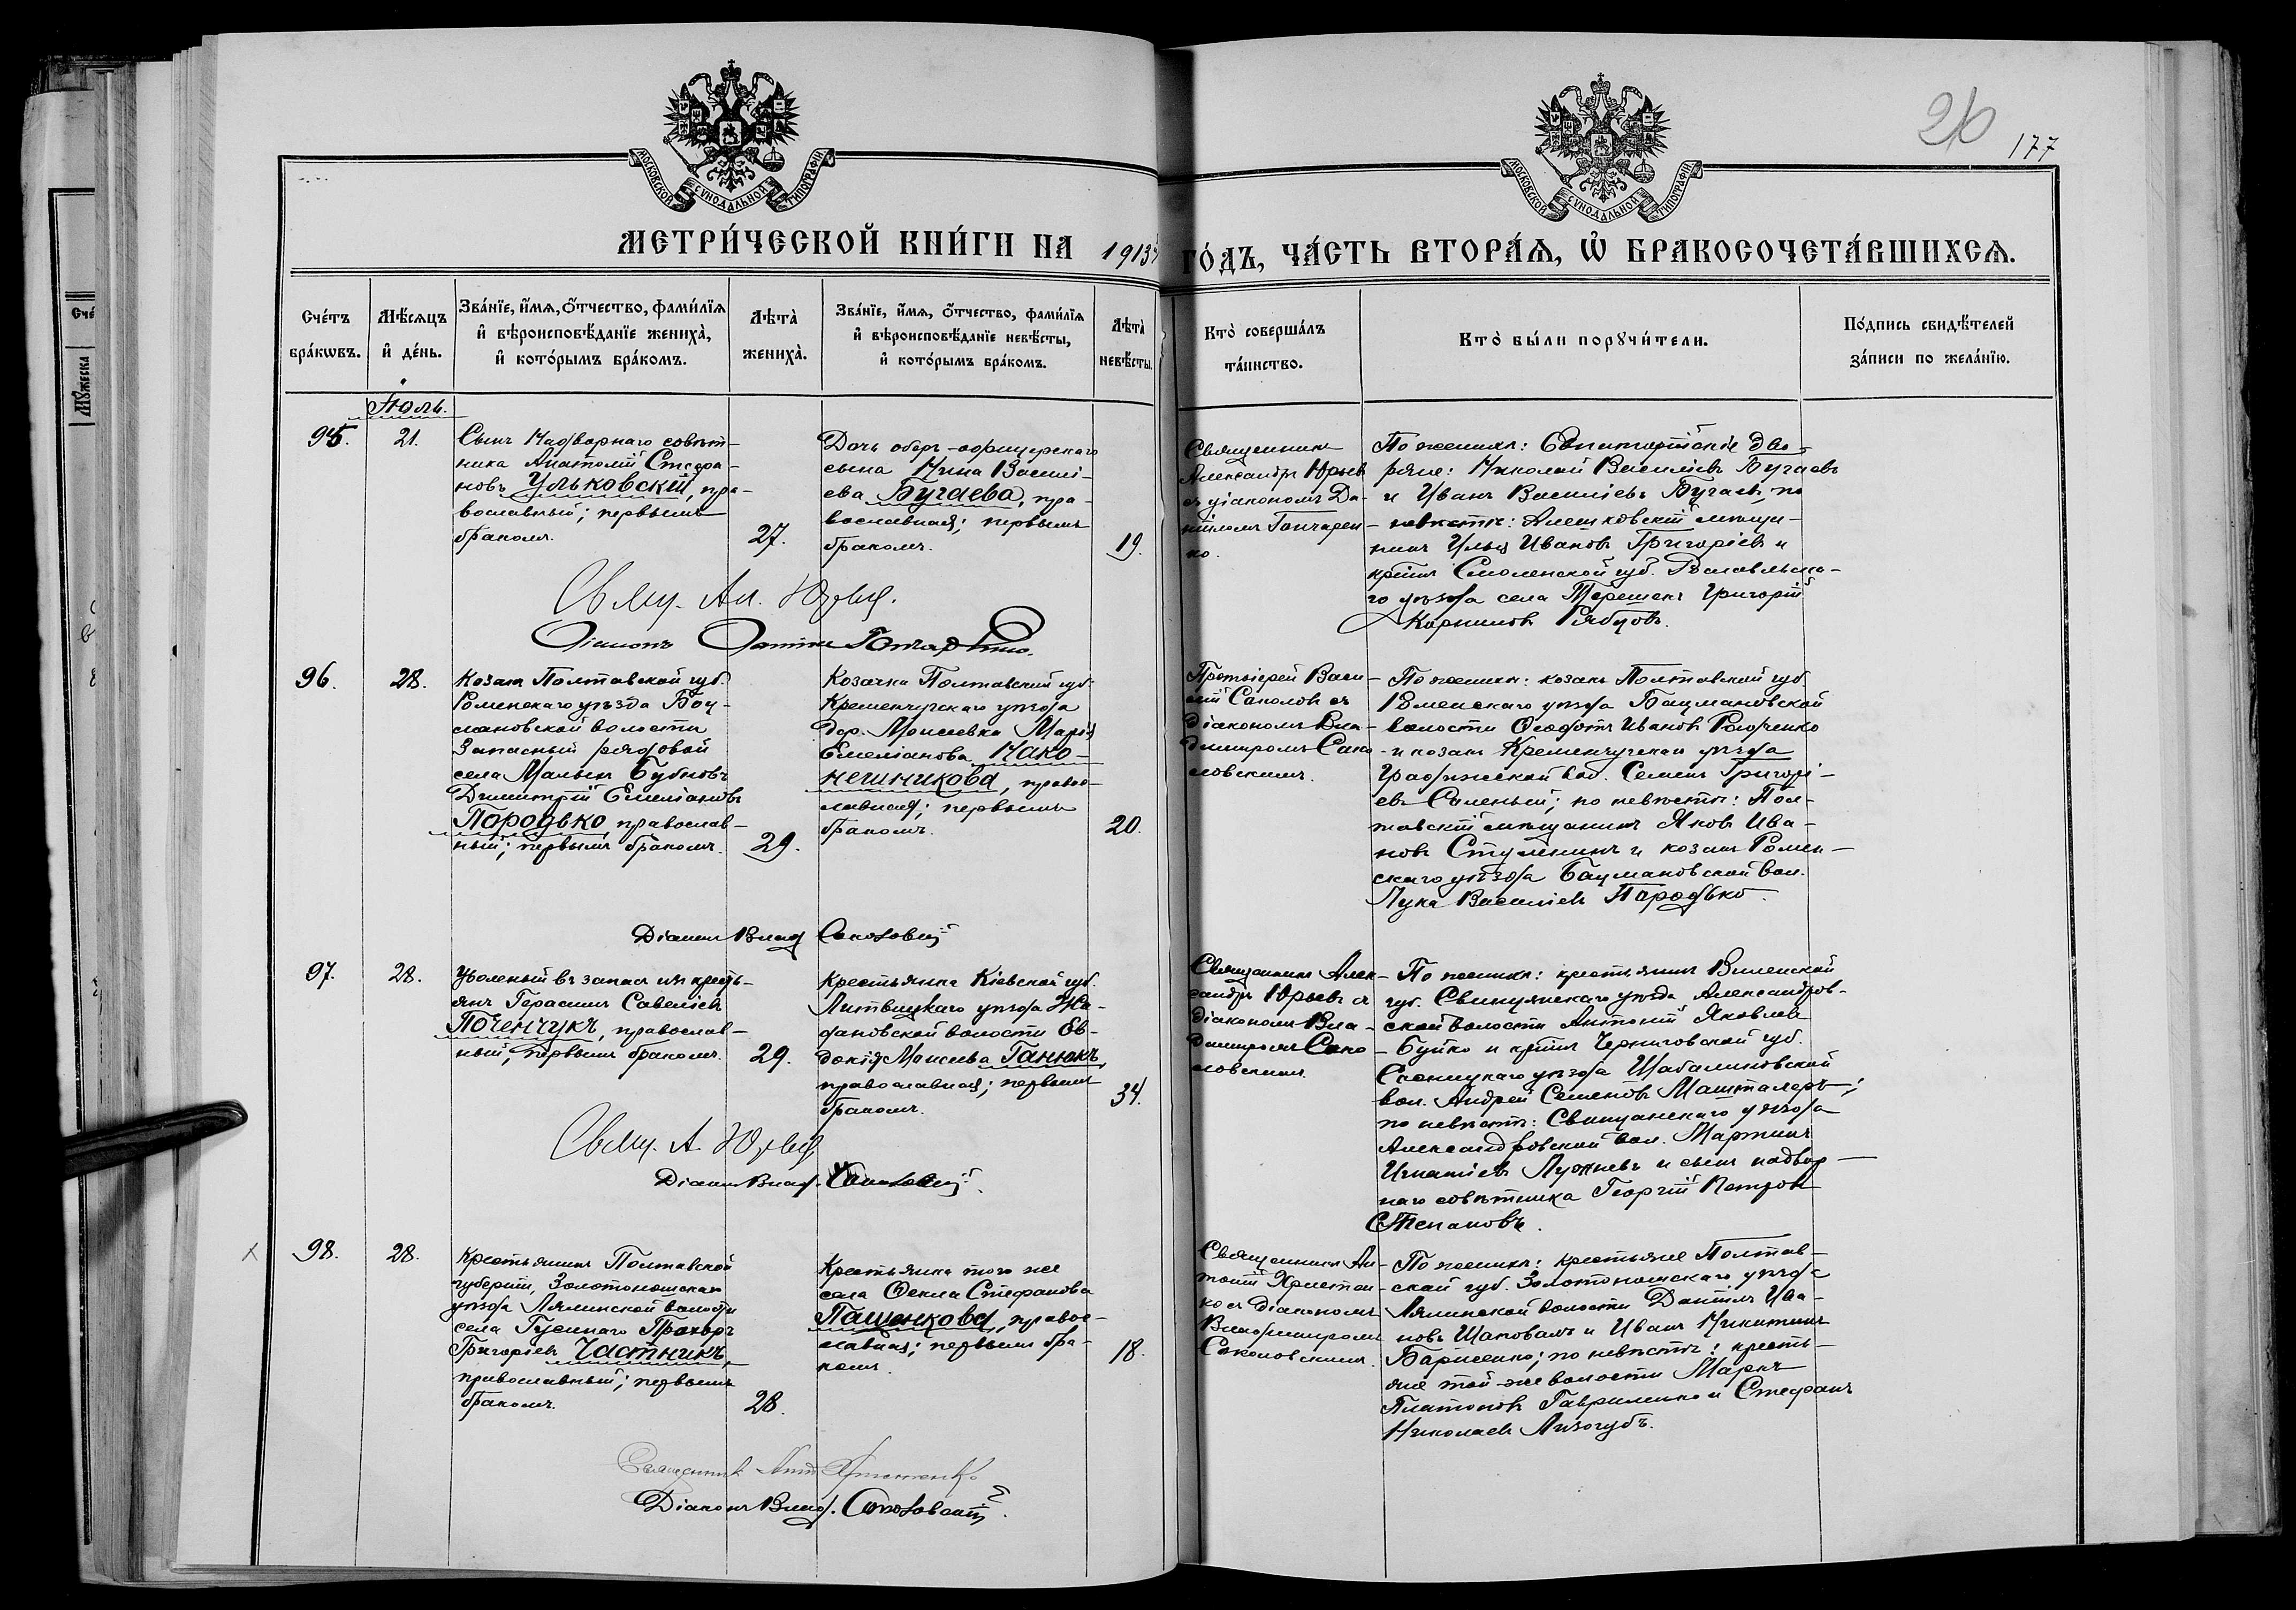 26
177
МОСКОВСКОЙ СѴНОДАЛЬНОЙ ТИПОГРАФІИ
МОСКОВСКОЙ СѴНОДАЛЬНОЙ ТИПОГРАФІИ
МЕТРИ́ЧЕСКОЙ КНИ́ГИ НА 1913 ГО́ДЪ, ЧА́СТЬ ВТОРА́Ѧ, Ѽ БРАКОСОЧЕТА́ВШИХСѦ.
Сче́тъ бра́кѡвъ.
Мѣ́сѧцъ и҆ де́нь.
Зва́нїе, и҆́мѧ, ѻ҆́тчество, фами́лїѧ
и҆ вѣроисповѣ́данїе жениха̀,
и҆ кото́рымъ бра́комъ.
Лѣта̀ жениха̀.
Зва́нїе, и҆́мѧ, ѻ҆́тчество, фами́лїѧ
и҆ вѣроисповѣ́данїе невѣ́сты,
и҆ кото́рымъ бра́комъ.
Лѣта̀ невѣ́сты.
Кто̀ соверша́лъ
та́инство.
Кто̀ бы́ли порꙋчи́тели.
По́дпись свидѣ́телей
за́писи по жела́нїю.
Іюль.
95.
21.
Сынъ Надворнаго совѣт-
ника Анатолій Стефа-
новъ Ульковскій, пра-
вославный; первымъ
бракомъ.
27.
Дочь оберъ-офицерскаго
сына Нина Василі-
ева Бугаева, пра-
вославная; первымъ
бракомъ.
19.
Священникъ
Александръ Юрьев
съ діакономъ Да-
ніиломъ Гончарен-
ко.
По женихѣ: дво-
ряне: Николай Василіевъ Бугаевъ
и Иванъ Василіевъ Бугаевъ; по
невѣстѣ: Алешковскій мѣща-
нинъ Илья Ивановъ Григорьевъ и
кр-нинъ Смоленской губ. Рославльска-
го уѣзда села Терешекъ Григорій
Корниловъ Рябцовъ.
Свящ. Ал. Юрьев.
Діаконъ Даніилъ Гончаренко.
96.
28.
Козакъ Полтавской губ.
Роменскаго уѣзда Бац-
мановской волости
Запасный рядовой
села Малыхъ Бубновъ
Димитрій Емеліановъ
Породько, православ-
ный; первымъ бракомъ.
29.
Козачка Полтавской губ.
Кременчугскаго уѣзда
дер. Моисеевки Марія
Емеліанова Нако-
нешникова, право-
славная; первымъ
бракомъ.
20.
Протоіерей Васи-
лій Соколовъ съ
діакономъ Вла-
димиромъ Соко-
ловскимъ.
По женихѣ: козакъ Полтавской губ
Роменскаго уѣзда Бацмановской
волости Ѳеодотъ Ивановъ
и козакъ Кременчугскаго уѣзда
Градижской вол. Семенъ Григорі-
евъ; по невѣстѣ: Пол-
тавскій мѣщанинъ Яковъ Ива-
новъ и козакъ Ромен-
скаго уѣзда Бацмановской вол.
Лука Василіевъ Породько.
Діаконъ Влад Соколовскій
97.
28.
Уволеный въ запасъ изъ кресть-
янъ Герасимъ Савеліевъ
Поченчукъ, православ-
ный; первымъ бракомъ.
29.
Крестьянка Кіевской губ.
уѣзда Жа-
дановской волости Ев-
докія Моисеева Ганюкъ,
православная; первымъ
бракомъ.
34.
Священникъ Алек-
сандръ Юрьевъ съ
діакономъ Вла-
димиромъ Соко-
ловскимъ.
По женихѣ: крестьянинъ Виленской
губ. Свенцянскаго уѣзда, Александров-
ской волости Антоній Яковлевъ
Буйко и кр-нинъ Черниговской губ.
уѣзда Шабалиновской
вол. Андрей Семеновъ Машталеръ;
по невѣстѣ: Свенцянскаго уѣзда
Александровской вол. Мартинъ
Игнатіевъ и сынъ надвор-
наго совѣтника Георгій Петровъ
Степановъ.
Свящ. А. Юрьев
Діаконъ Влад. Соколовскій.
98.
28.
Крестьянинъ Полтавской
губерніи, Золотоношскаго
уѣзда Лялинской волости
села Гусинаго Прохоръ
Григоріевъ Частникъ,
православный; первымъ
бракомъ.
28.
Крестьянка того же
села Ѳекла Стефанова
Пащенкова, право-
славная; первымъ бра-
комъ.
18.
Священникъ Ан-
тоній Христен-
ко съ діакономъ
Владимиромъ
Соколовскимъ.
По женихѣ: крестьяне Полтав-
ской губ. Золотоношскаго уѣзда
Лялинской волости Даніилъ Ива-
новъ Шаповалъ и Иванъ Никитинъ
Борисенко; по невѣстѣ: кресть-
яне той-же волости Маркъ
Платоновъ Гавриленко и Стефанъ
Николаевъ Лизогубъ.
Священникъ Ант Христенко
Діаконъ Влад. Соколовскій.